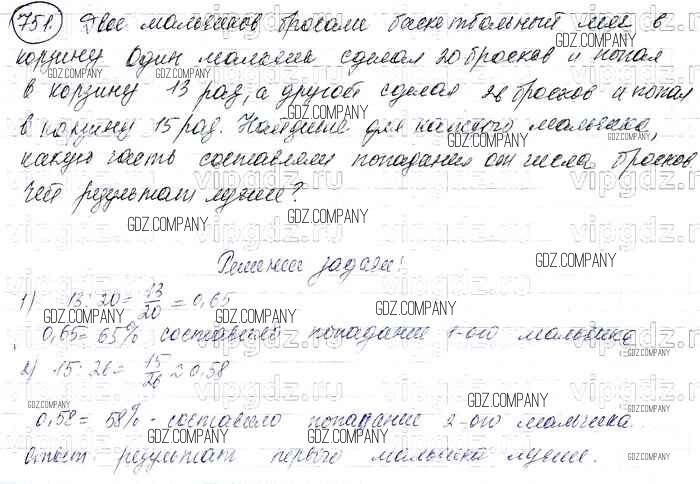 751. Двое мальчиков бросали баскетбольный мяч в
корзину. Один мальчик сделал 20 бросков и попал
в корзину 13 раз, а другой сделал 26 бросков и попал
в корзину 15 раз. Найдите для каждого мальчика,
какую часть составляют попадания от числа бросков
Чей результат лучше?
Решение задачи!
1) 13 : 20 = 13/20 = 0,65
0,65 = 65% составляло попадание 1-ого мальчика
2) 15 : 26 = 15/26 ≈ 0.58
0,58 = 58% - составляло попадание 2-ого мальчика.
Ответ: результат первого мальчика лучше.
GDZ.COMPANY
vipgdz.ru